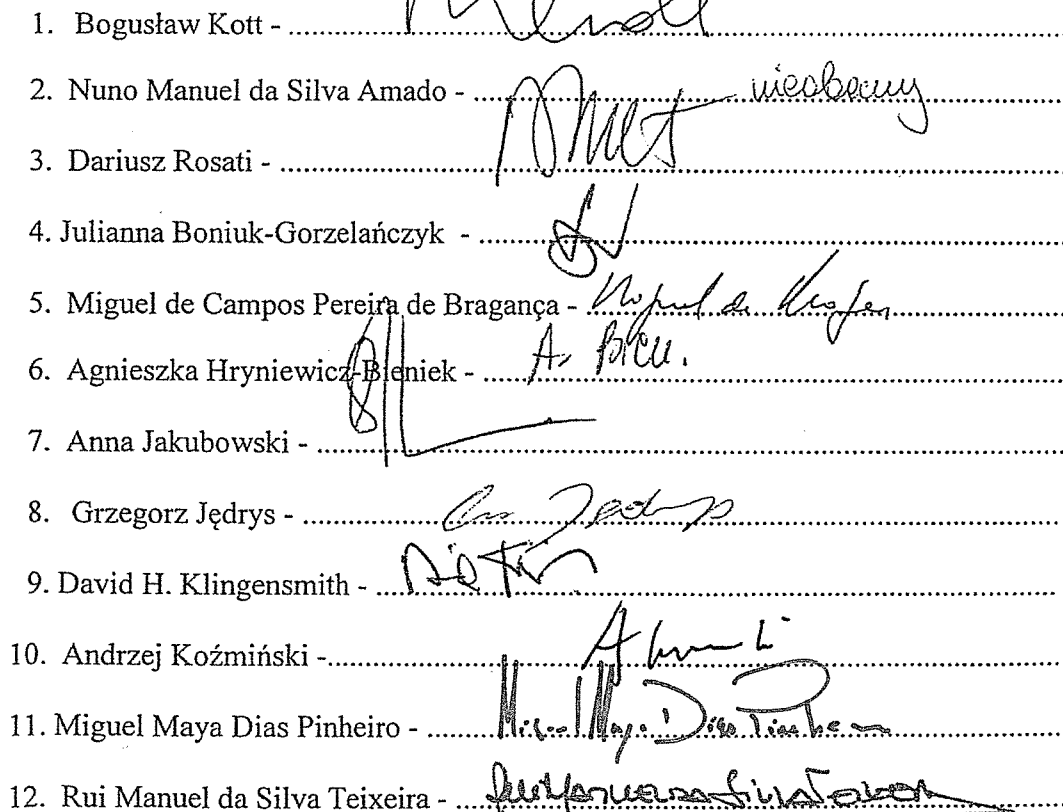 1. Bogusław Kott - ........................................
2. Nuno Manuel da Silva Amado - .................... nieobecny
3. Dariusz Rosati - ........................................
4. Julianna Boniuk-Gorzelańczyk - ........................................
5. Miguel de Campos Pereira de Bragança - ........................................
6. Agnieszka Hryniewicz-Bieniek - ........................................
7. Anna Jakubowski - ........................................
8. Grzegorz Jędrys - ........................................
9. David H. Klingensmith - ........................................
10. Andrzej Koźmiński -........................................
11. Miguel Maya Dias Pinheiro - ........ Miguel Maya Dias Pinheiro
12. Rui Manuel da Silva Teixeira - ........................................